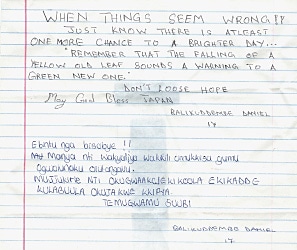 WHEN THINGS SEEM WRONG!!
JUST KNOW THERE IS ATLEAST
ONE MORE CHANCE TO A BRIGHTER DAY...
"REMEMBER THAT THE FALLING OF A
YELLOW OLD LEAF SOUNDS A WARNING TO A
GREEN NEW ONE."
DON'T LOOSE HOPE
May God Bless JAPAN
BALIKUDDEMBE DANIEL
17
Ebintu nga bisobye!!
Manya nti wakyaliya omukisa gumu
MUJJUKIRE NTI OKUGWA EKIKOOLA EKIKADDE
KULABULA
TEMUGWAMU SUUBI
BALIKUDDEMBE DANIEL
17.